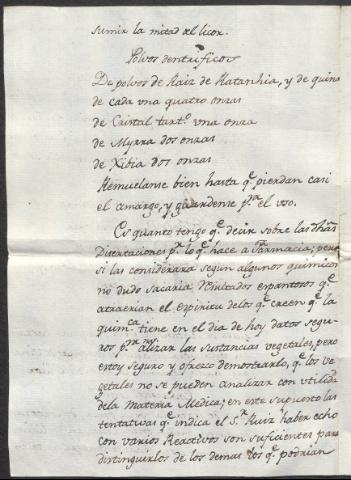 sumir la mitad del licor.
Polvos dentrificos
De polvos de Raiz de Ratanhia, y de quina
de cada una quatro onzas
de Cristal tart.º una onza
de Myrra dos onzas
de Xibia dos onzas
Remuelanse bien hasta q.e pierdan casi
el amargo, y guardense p.a el uso.
Es quanto tengo q.e decir sobre las dhas
Disertaciones p.r lo q.e hace a Farmacia; pero
si las considerara segun algunos quimicos
no dudo sacaria resultados espantosos q.e
atraerian el Espiritu de los q.e creen q.e la
quim.ca tiene en el dia de hoy datos segu-
ros p.a analizar las sustancias vegetales, pero
estoy seguro y ofrezco demostrarlo, q.e los ve-
getales no se pueden analizar con utilidad
de la Materia Medica; en este supuesto las
tentativas q.e indica el S.r Ruiz haber echo
con varios Reactivos son suficientes para
distinguirlos de los demas q.e podrian